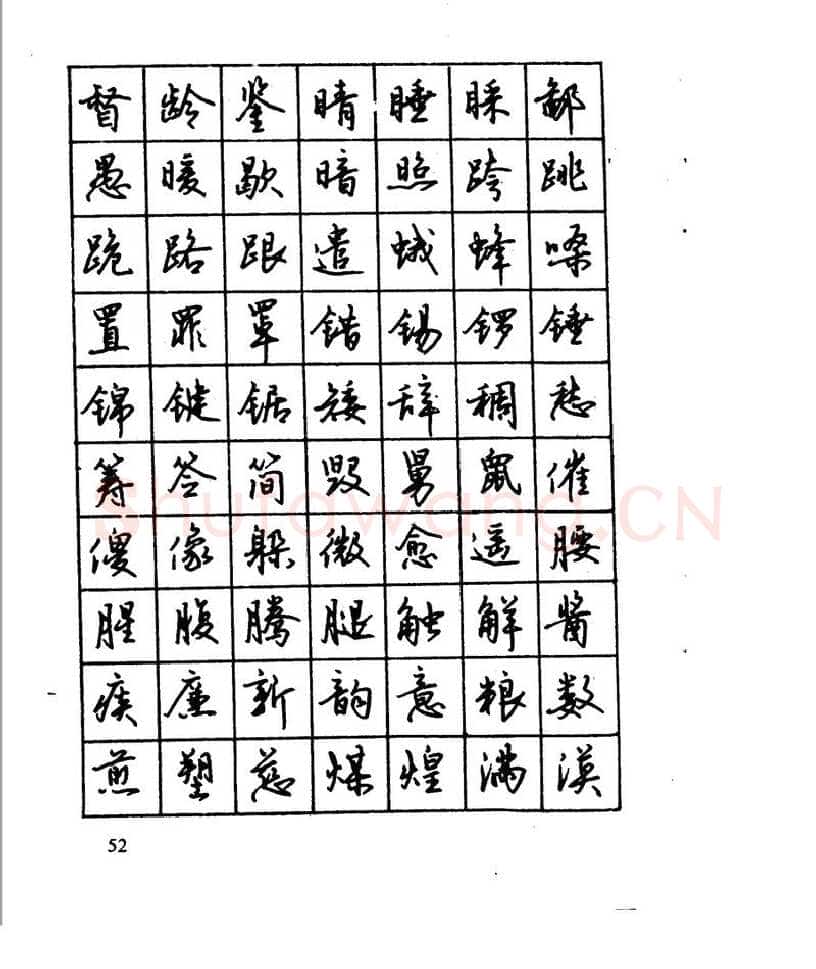 督龄鉴睛睡睬鄙
愚暖歇暗照跨跳
跪路跟遣蛾蜂嗓
置罪罩错锡锣锤
锦键锯矮辞稠愁
筹签简毁舅鼠催
傻像躲微愈遥腰
腥腹腾腿触解酱
痰廉新韵意粮数
煎塑慈煤煌满漠
shufawang.CN
52